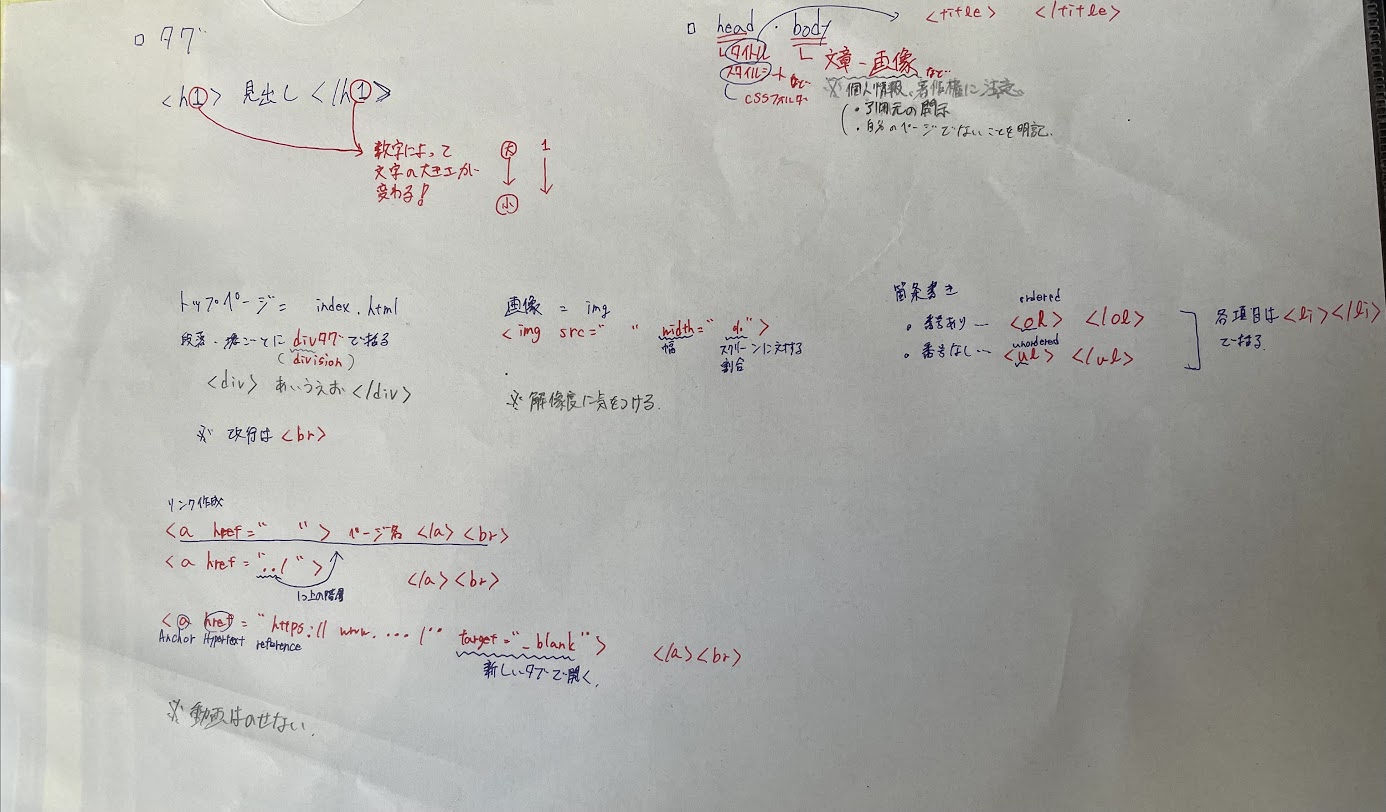 □ タグ
<h1> 見出し </h1>
数字によって
文字の大きさが
変わる!
大 1
↓ ↓
小
□ head ・ body
<title> </title>
タイトル
スタイルシート など…
CSSフォルダ
文章・画像 など…
※ 個人情報、著作権に注意。
・引用元の開示
・自分のページでないことを明記.
トップページ = index.html
段落・塊ごとにdivタグで括る
(division)
<div> あいうえお </div>
※ 改行は <br>
画像 = img
<img src=" " width=" %">
幅 スクリーンに対する
割合
※ 解像度に気をつける.
箇条書き
ordered
・番号あり… <ol> </ol>
unordered
・番号なし… <ul> </ul>
各項目は<li></li>
で括る.
リンク作成
<a href=" "> ページ名 </a> <br>
<a href="../"> </a><br>
1つ上の階層
<a href="https://www.…/" target="_blank"> </a><br>
Anchor Hypertext reference
新しいタブで開く.
※ 動画はのせない.